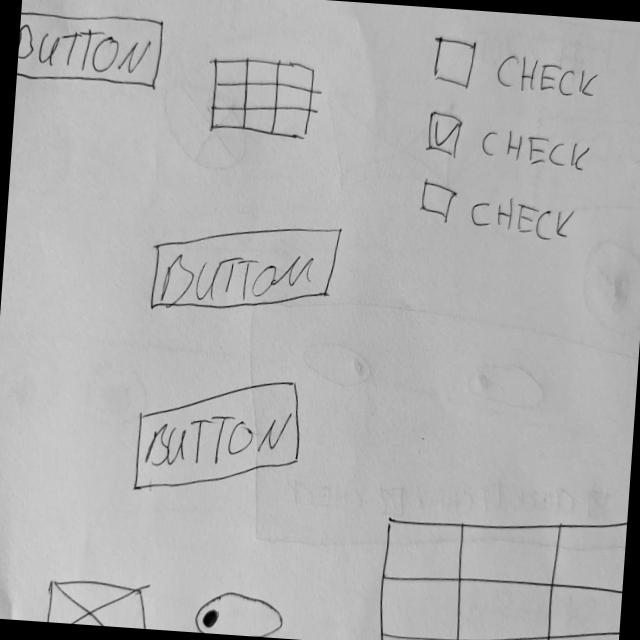 BUTTON
CHECK
CHECK
CHECK
BUTTON
BUTTON